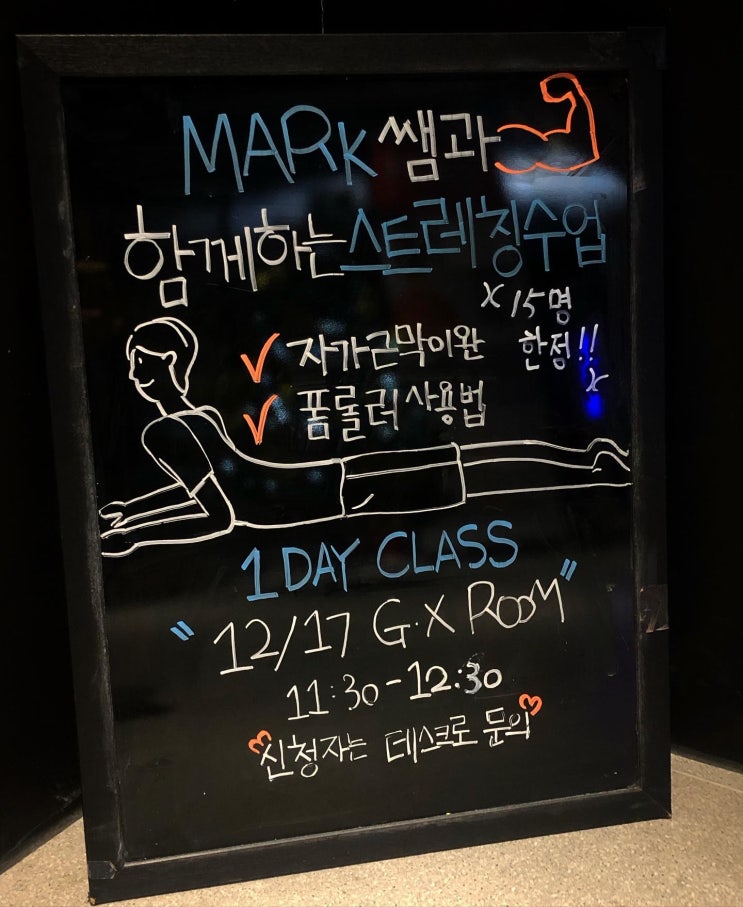 MARK쌤과
함께하는 스트레칭수업
x 15명
한정!! x
✓ 자가근막이완
✓ 폼롤러 사용법
1 DAY CLASS
"12/17 G.X ROOM"
11:30-12:30
♡신청자는 데스크로 문의♡